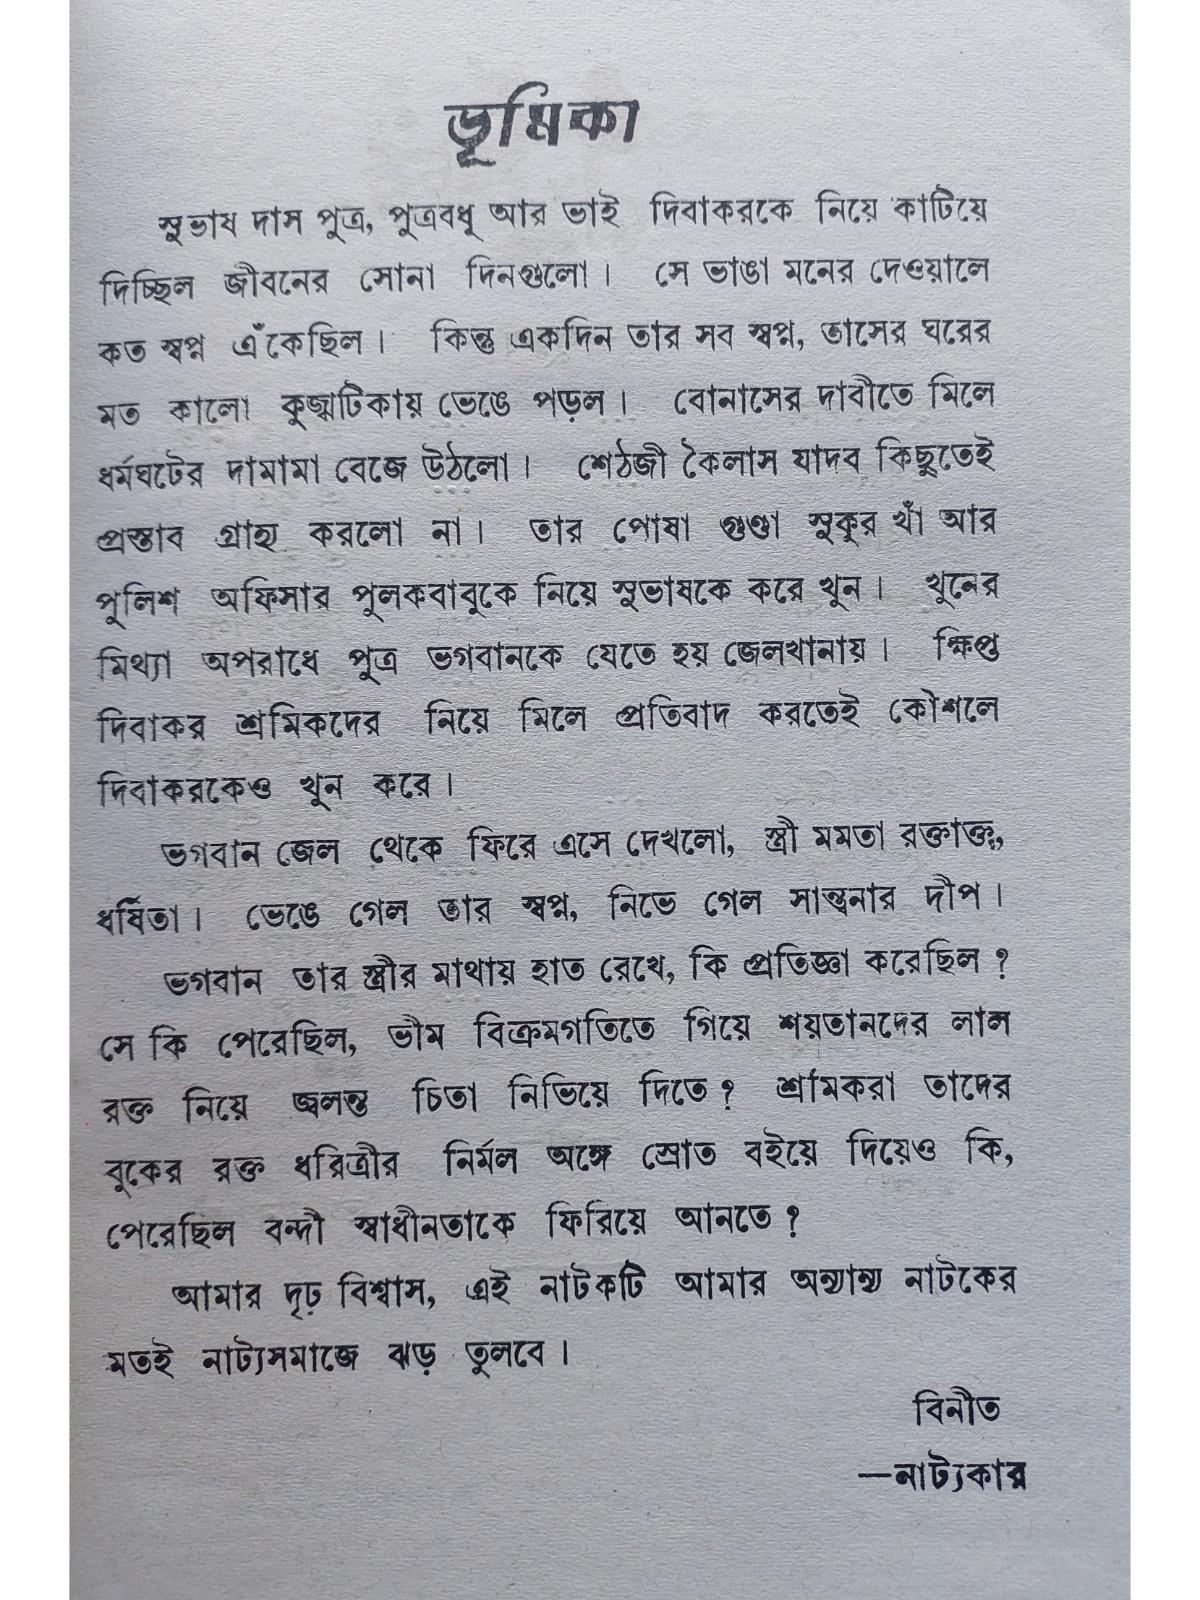 ভূমিকা
সুভাষ দাস পুত্র, পুত্রবধূ আর ভাই দিবাকরকে নিয়ে কাটিয়ে
দিচ্ছিল জীবনের সোনা দিনগুলো। সে ভাঙা মনের দেওয়ালে
কত স্বপ্ন এঁকেছিল। কিন্তু একদিন তার সব স্বপ্ন, তাসের ঘরের
মত কালো কুজ্ঝটিকায় ভেঙে পড়ল। বোনাসের দাবীতে মিলে
ধর্মঘটের দামামা বেজে উঠলো। শেঠজী কৈলাস যাদব কিছুতেই
প্রস্তাব গ্রাহ্য করলো না। তার পোষা গুণ্ডা সুকুর খাঁ আর
পুলিশ অফিসার পুলকবাবুকে নিয়ে সুভাষকে করে খুন। খুনের
মিথ্যা অপরাধে পুত্র ভগবানকে যেতে হয় জেলখানায়। ক্ষিপ্ত
দিবাকর শ্রমিকদের নিয়ে মিলে প্রতিবাদ করতেই কৌশলে
দিবাকরকেও খুন করে।
ভগবান জেল থেকে ফিরে এসে দেখলো, স্ত্রী মমতা রক্তাক্ত,
ধর্ষিতা। ভেঙে গেল তার স্বপ্ন, নিভে গেল সান্ত্বনার দীপ।
ভগবান তার স্ত্রীর মাথায় হাত রেখে, কি প্রতিজ্ঞা করেছিল?
সে কি পেরেছিল, ভীম বিক্রমগতিতে গিয়ে শয়তানদের লাল
রক্ত নিয়ে জ্বলন্ত চিতা নিভিয়ে দিতে? শ্রমিকরা তাদের
বুকের রক্ত ধরিত্রীর নির্মল অঙ্গে স্রোত বইয়ে দিয়েও কি,
পেরেছিল বন্দী স্বাধীনতাকে ফিরিয়ে আনতে?
আমার দৃঢ় বিশ্বাস, এই নাটকটি আমার অন্যান্য নাটকের
মতই নাট্যসমাজে ঝড় তুলবে।
বিনীত
—নাট্যকার